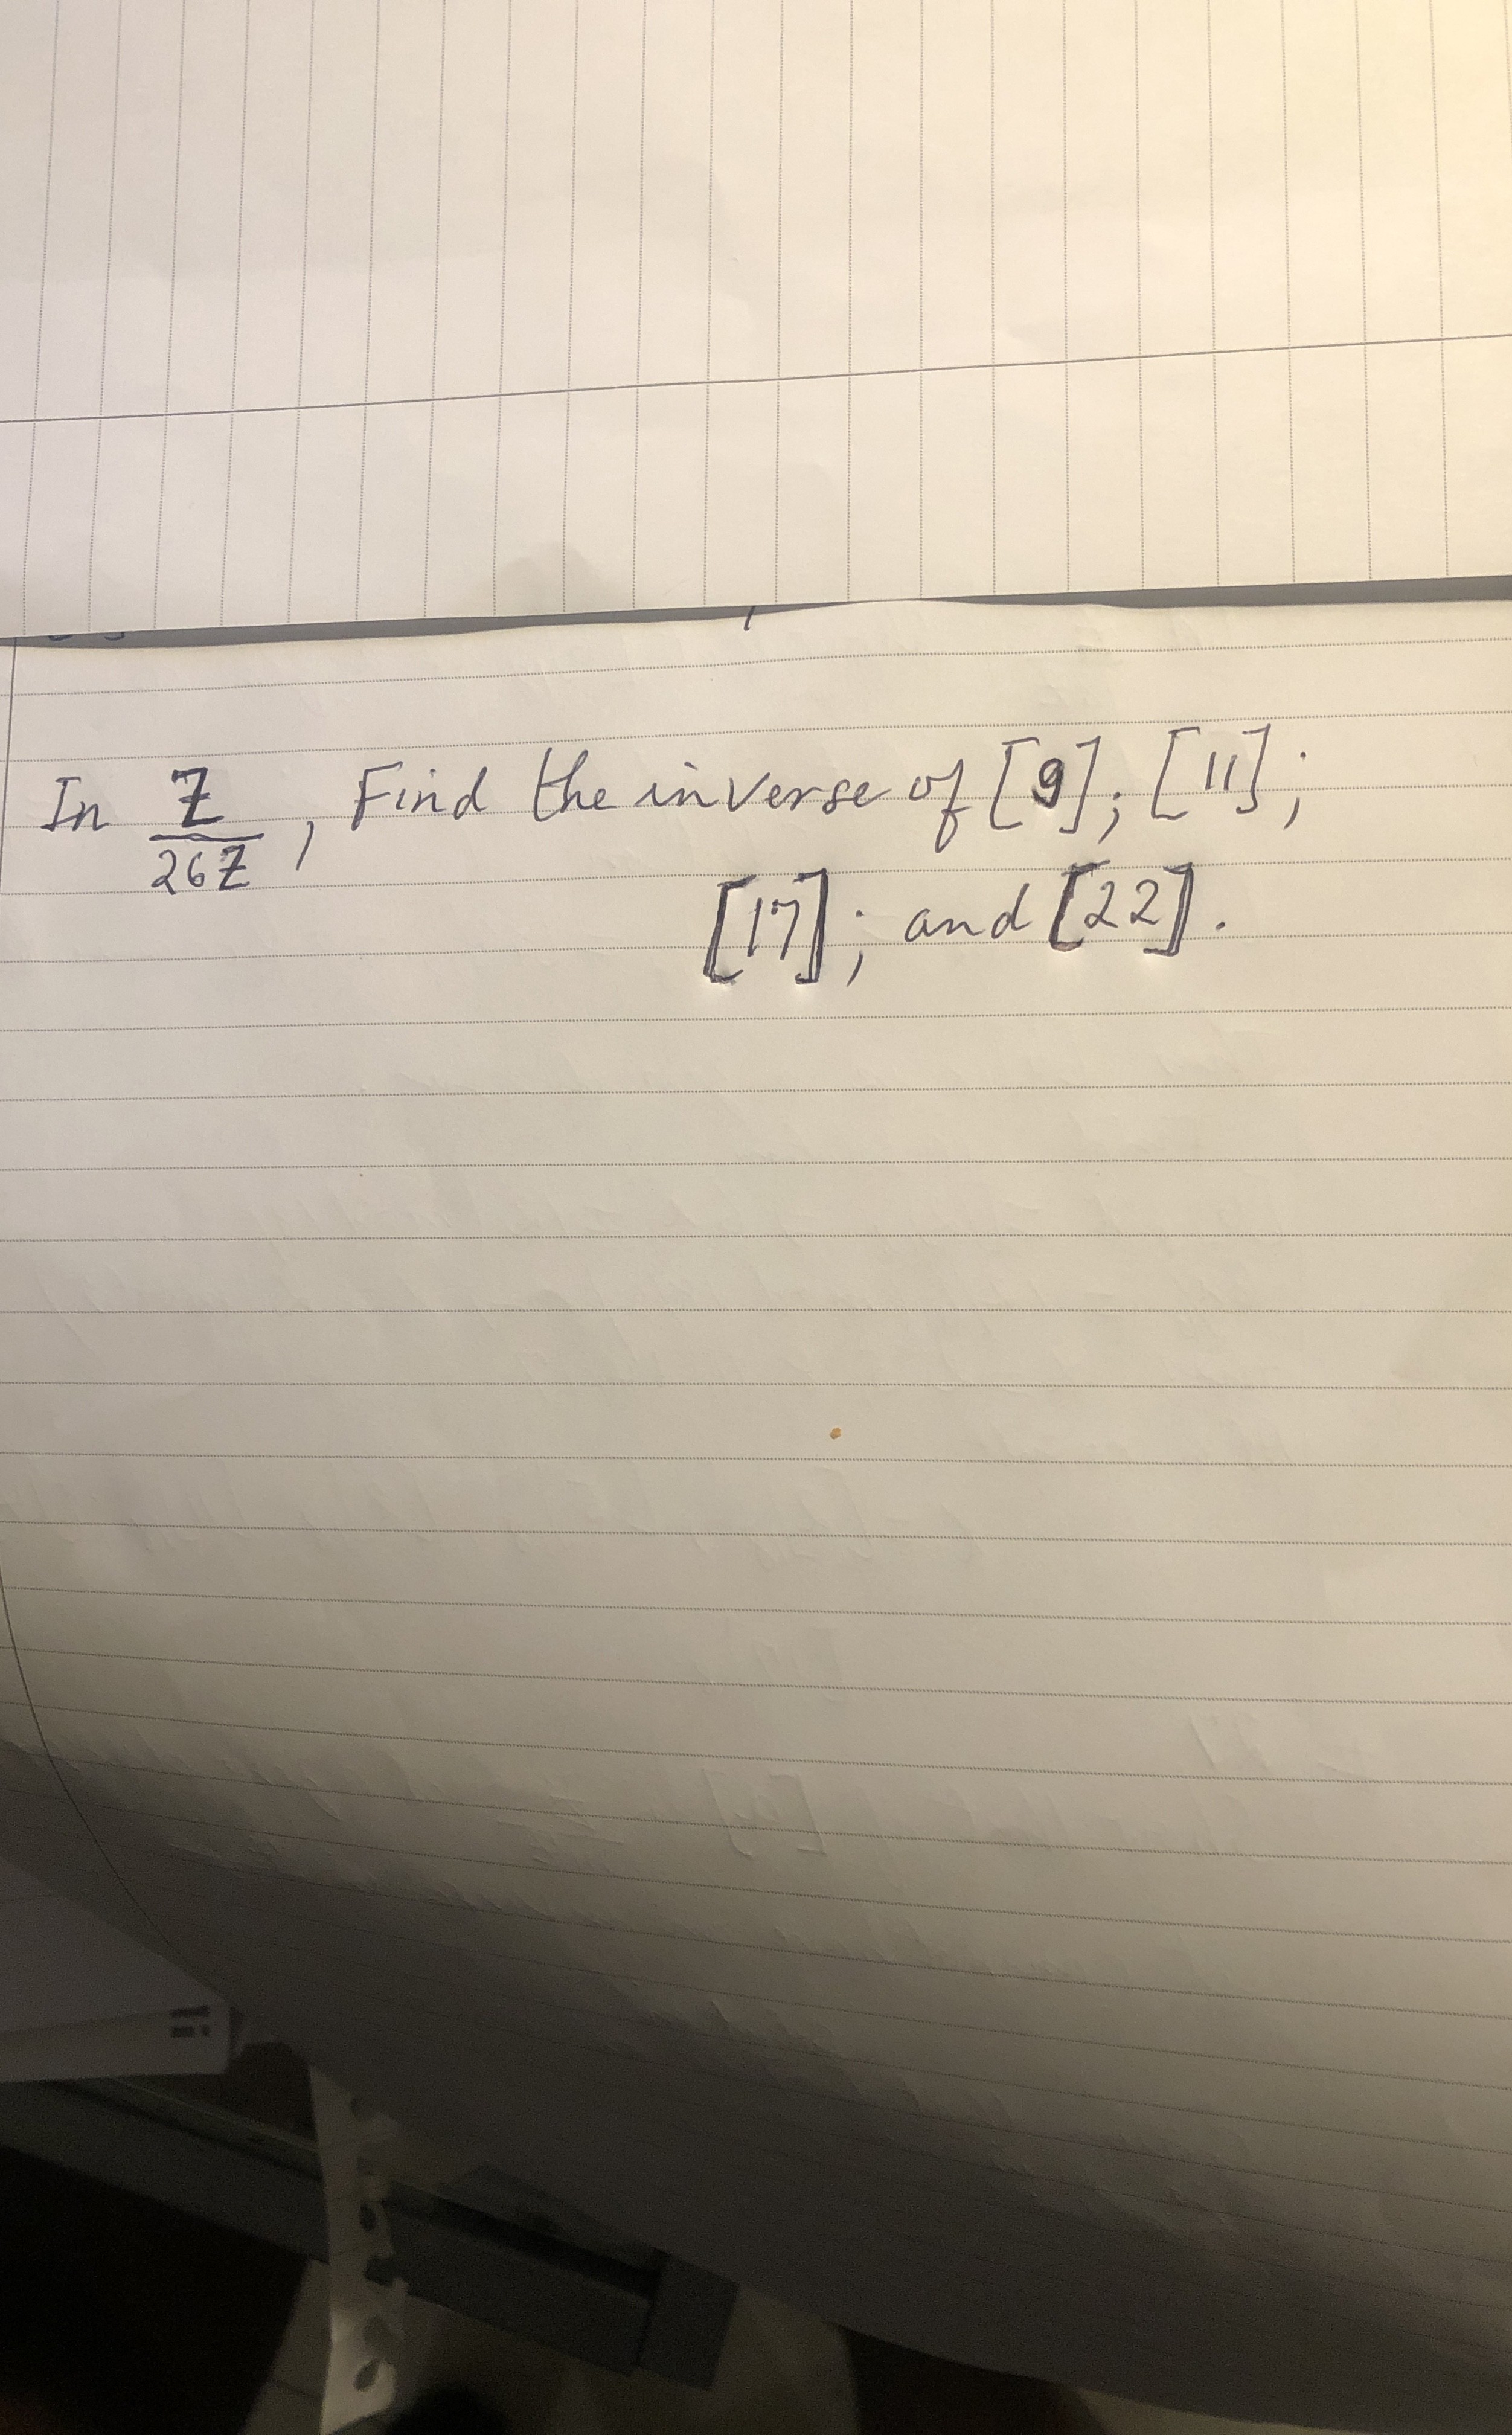 In Z/26Z, Find the inverse of [9]; [11];
[17]; and [22].